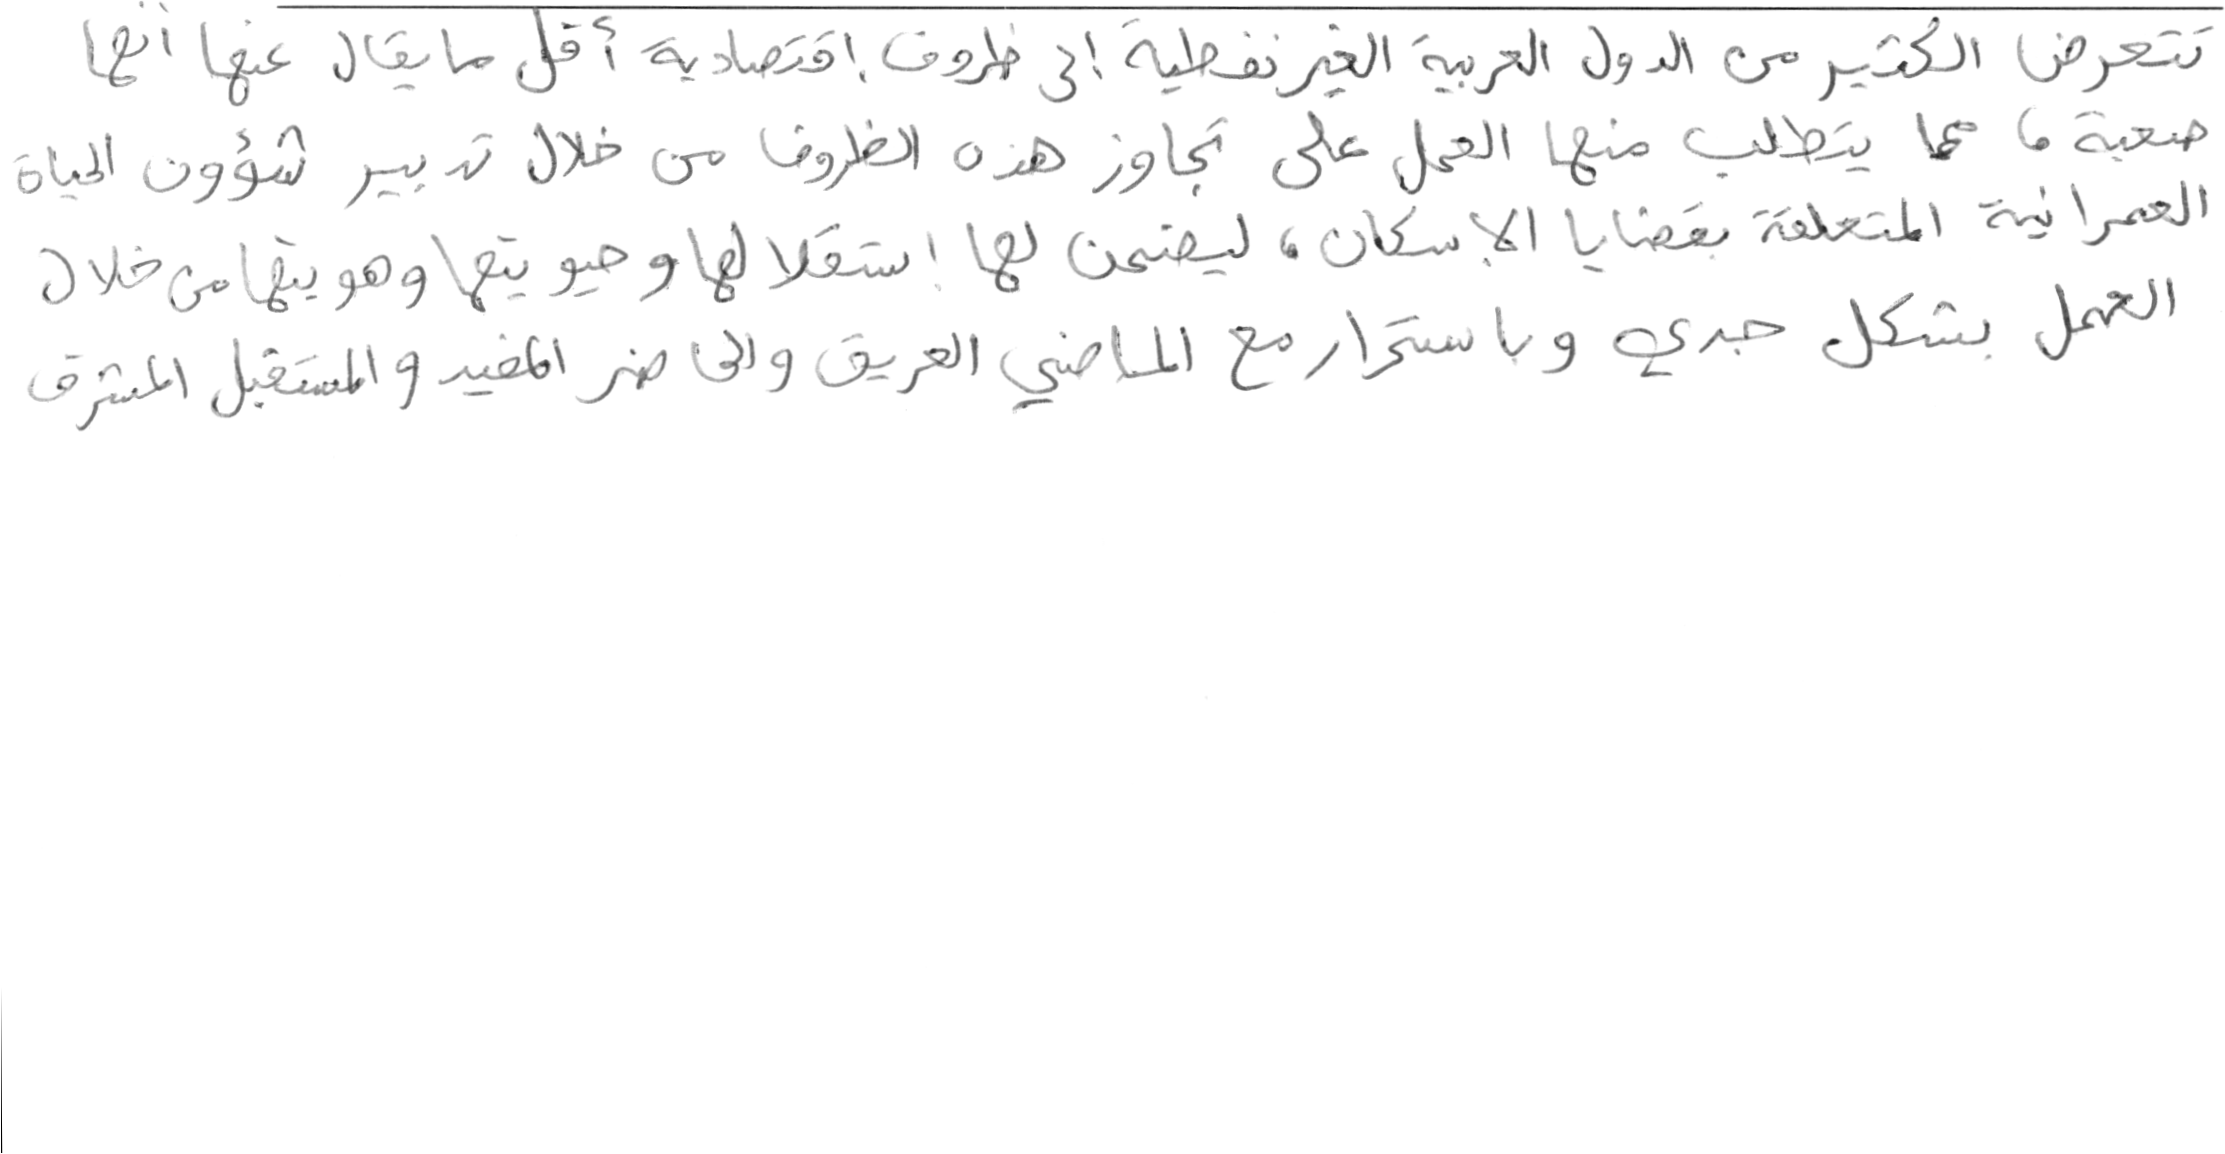 تتعرض الكثير من الدول العربية الغير نفطية إلى ظروف إقتصادية أقل ما يقال عنها أنها
صعبة ، مما يتطلب منها العمل على تجاوز هذه الظروف من خلال تدبير شؤون الحياة
العمرانية المتعلقة بقضايا الإسكان ، ليضمن لها إستقلالها وحيويتها وهويتها من خلال
العمل بشكل جدي وباستمرار مع الماضي العريق والحاضر المفيد والمستقبل المشرق